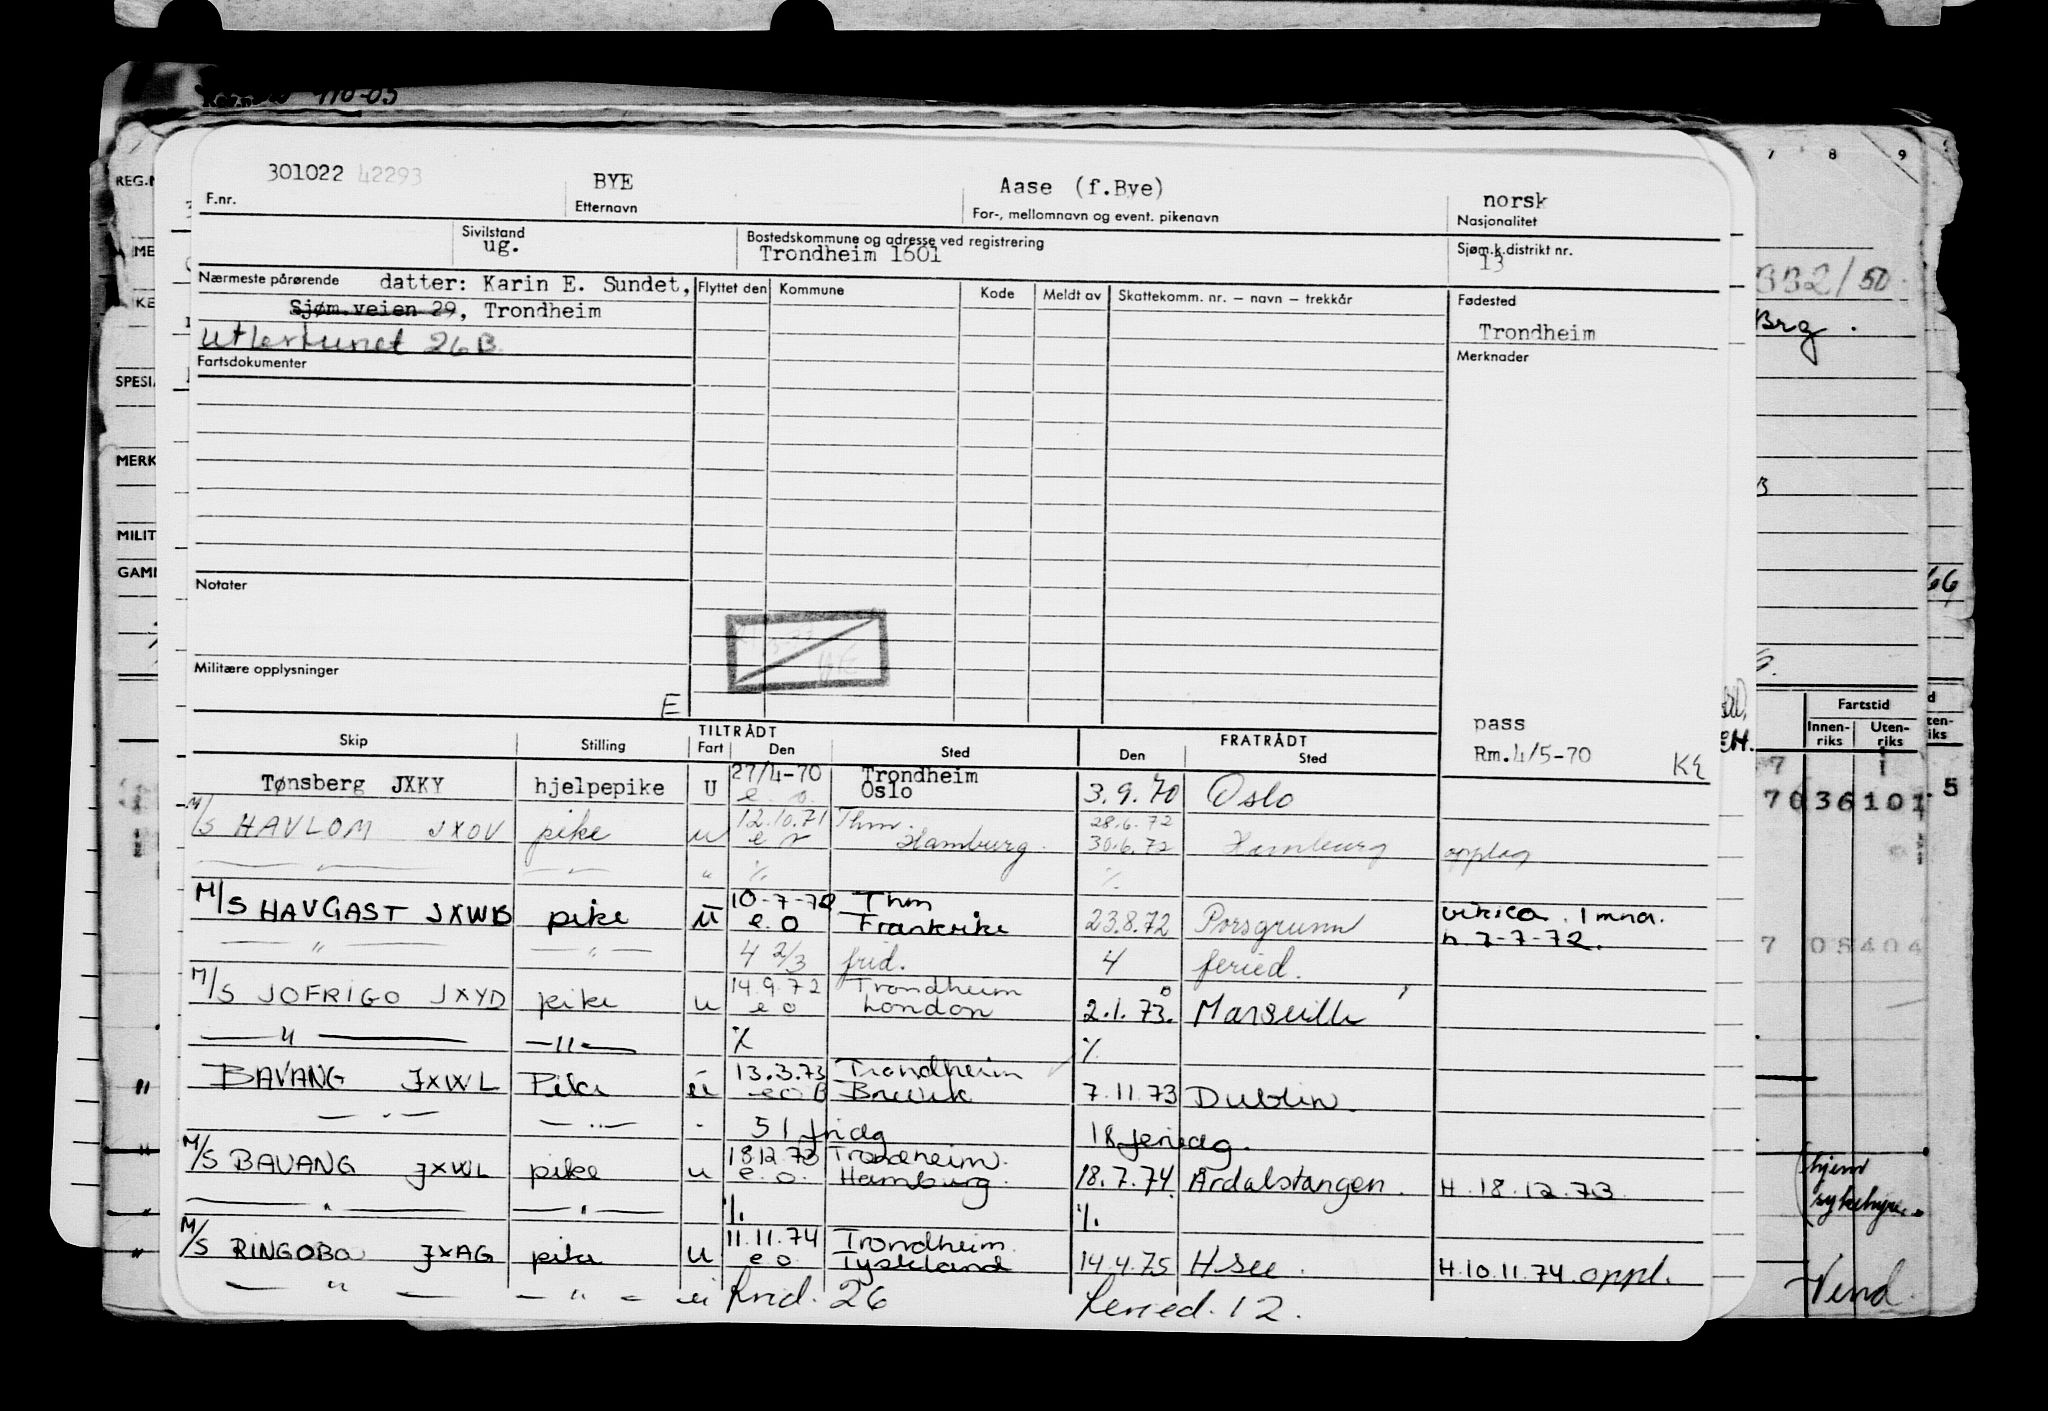 110-05
REG.N
301022 42293
BYE
Aase (f.Bye)
norsk
F.nr.
Etternavn
For-, mellomnavn og event. pikenavn
Nasjonalitet
Sivilstand
ug.
Bostedskommune og adresse ved registrering
Trondheim 1601
Sjøm.k.distrikt nr.
13
Nærmeste pårørende datter: Karin E. Sundet,
Flyttet den Kommune Kode Meldt av Skattekomm. nr. – navn – trekkår Fødested
Sjøm.veien 29, Trondheim
Trondheim
26 B.
Fartsdokumenter
Merknader
Notater
Militære opplysninger
E
pass
Rm.4/5-70 KE
TILTRÅDT FRATRÅDT
Skip Stilling Fart Den Sted Den Sted
Tønsberg JXKY hjelpepike U 27/4-70 Trondheim
e. o. Oslo 3.9.70 Oslo
M/S HAVLOM JXOV pike u 12.10.71 Thm. 28.6.72
e o Hamburg. 30.6.72 Hamburg opplag
— " — — " — " ٪ ٪
M/S HAVGAST JXWB pike U 10-7-72 Thm
e.o Frankrike 23.8.72 Porsgrunn 1 mnd.
h 7-7-72.
— " — — " — 4 2/3 frid. 4 feried.
M/S JOFRIGO JXYD pike u 14.9.72 Trondheim
e o London 2.1.73. Marseille
— " — — " — ٪ ٪
BAVANG JXWL Pike ú 13.3.73 Trondheim
eo B Brevik 7.11.73 Dublin.
— " — — " — 51 fridg 18 feriedg.
M/S BAVANG JXWL pike u 18.12.73 Trondheim.
e.o. Hamburg. 18.7.74. Årdalstangen. H. 18.12.73
— " — — " — ٪ ٪
M/S RINGOBO JXAG pike u 11.11.74 Trondheim.
e o. Tyskland 14.4.75 H.see. H.10.11.74. oppl.
— " — — " — frid. 26 feried. 12.
7 8 9
332/50
Brg.
ME
KE
SPESI
MERK
MILIT
GAMI
66
Fartstid
Innen-
riks
Uten-
riks
EH.
7 1
70 36 101 5
7 05 404
hjem
sykehyre.
Vend.